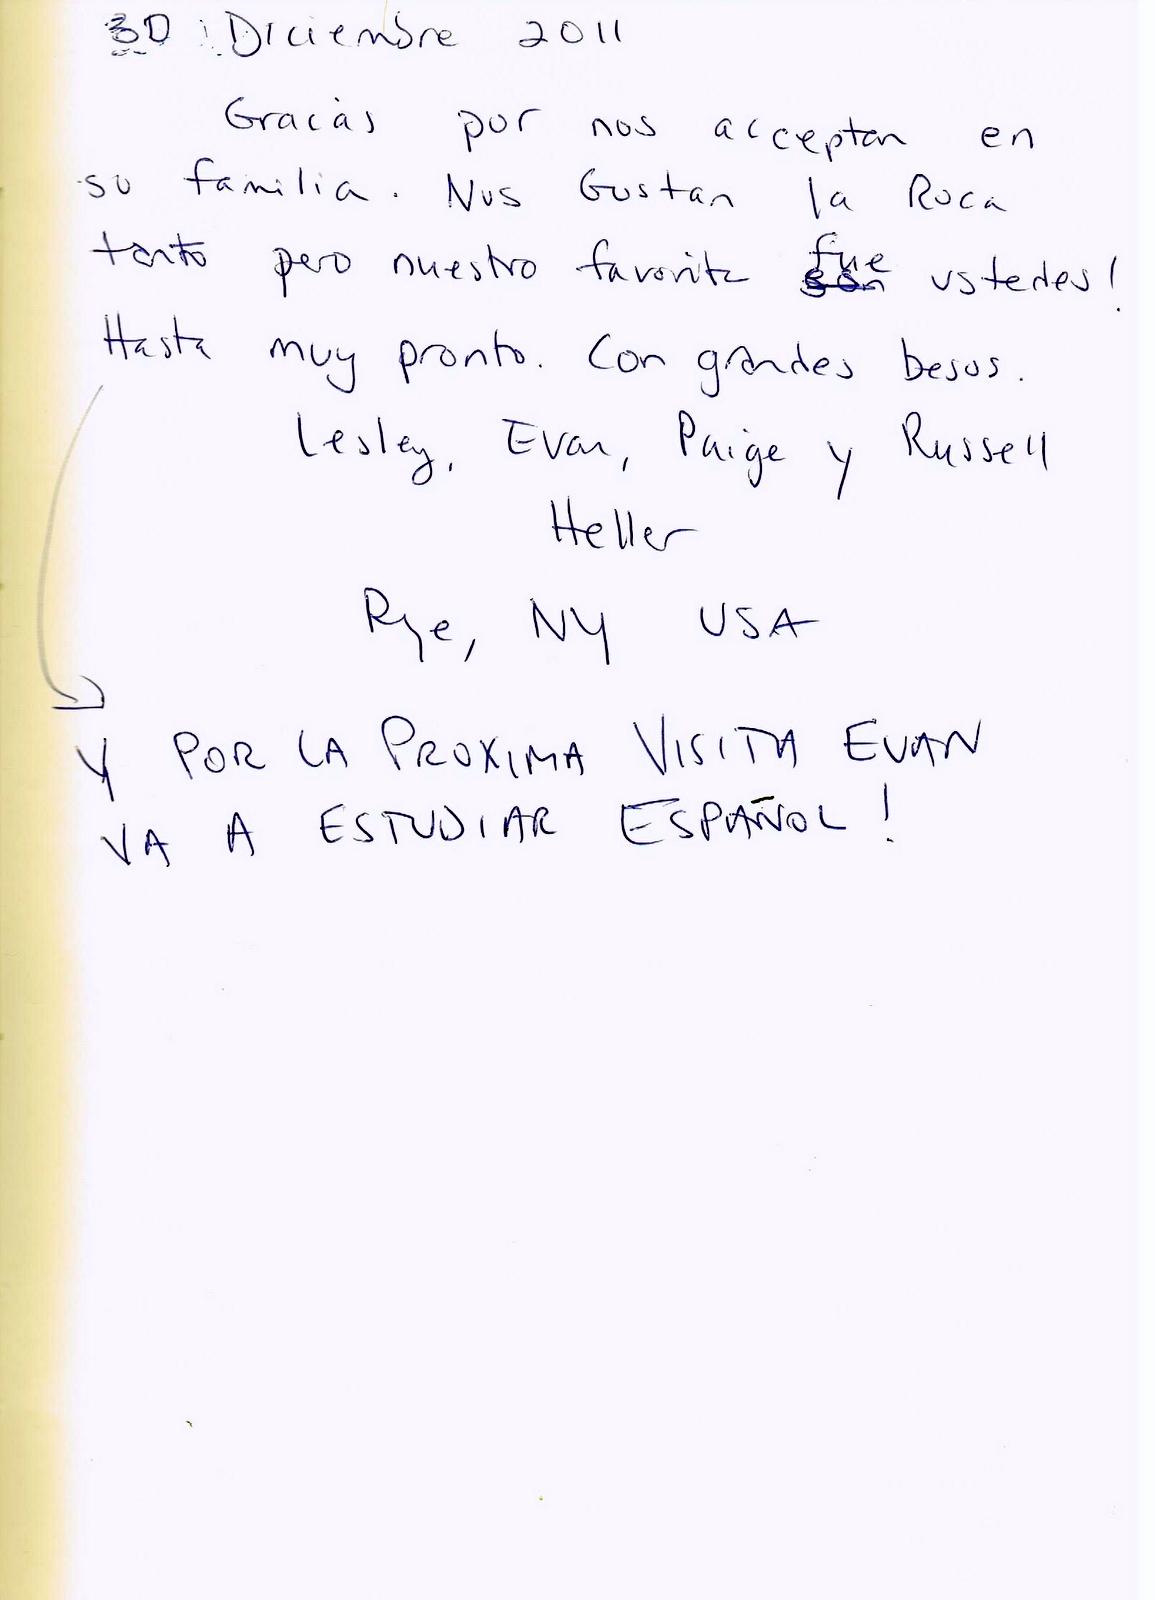 30 Diciembre 2011
Gracias por nos acceptan en
su familia. Nos Gustan la Roca
tanto pero nuestro favorita fue ustedes!
Hasta muy pronto. Con grandes besos.
Lesley, Evan, Paige y Russell
Heller
Rye, NY USA
Y POR LA PROXIMA VISITA EVAN
VA A ESTUDIAR ESPAÑOL!